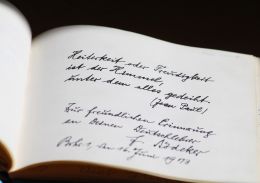 Heiterkeit oder Freudigkeit
ist der Himmel,
unter dem alles gedeiht.
(Jean Paul)
Zur freundlichen Erinnerung
an Deinen Deutschlehrer
F. Rädecker
den 16. Juni